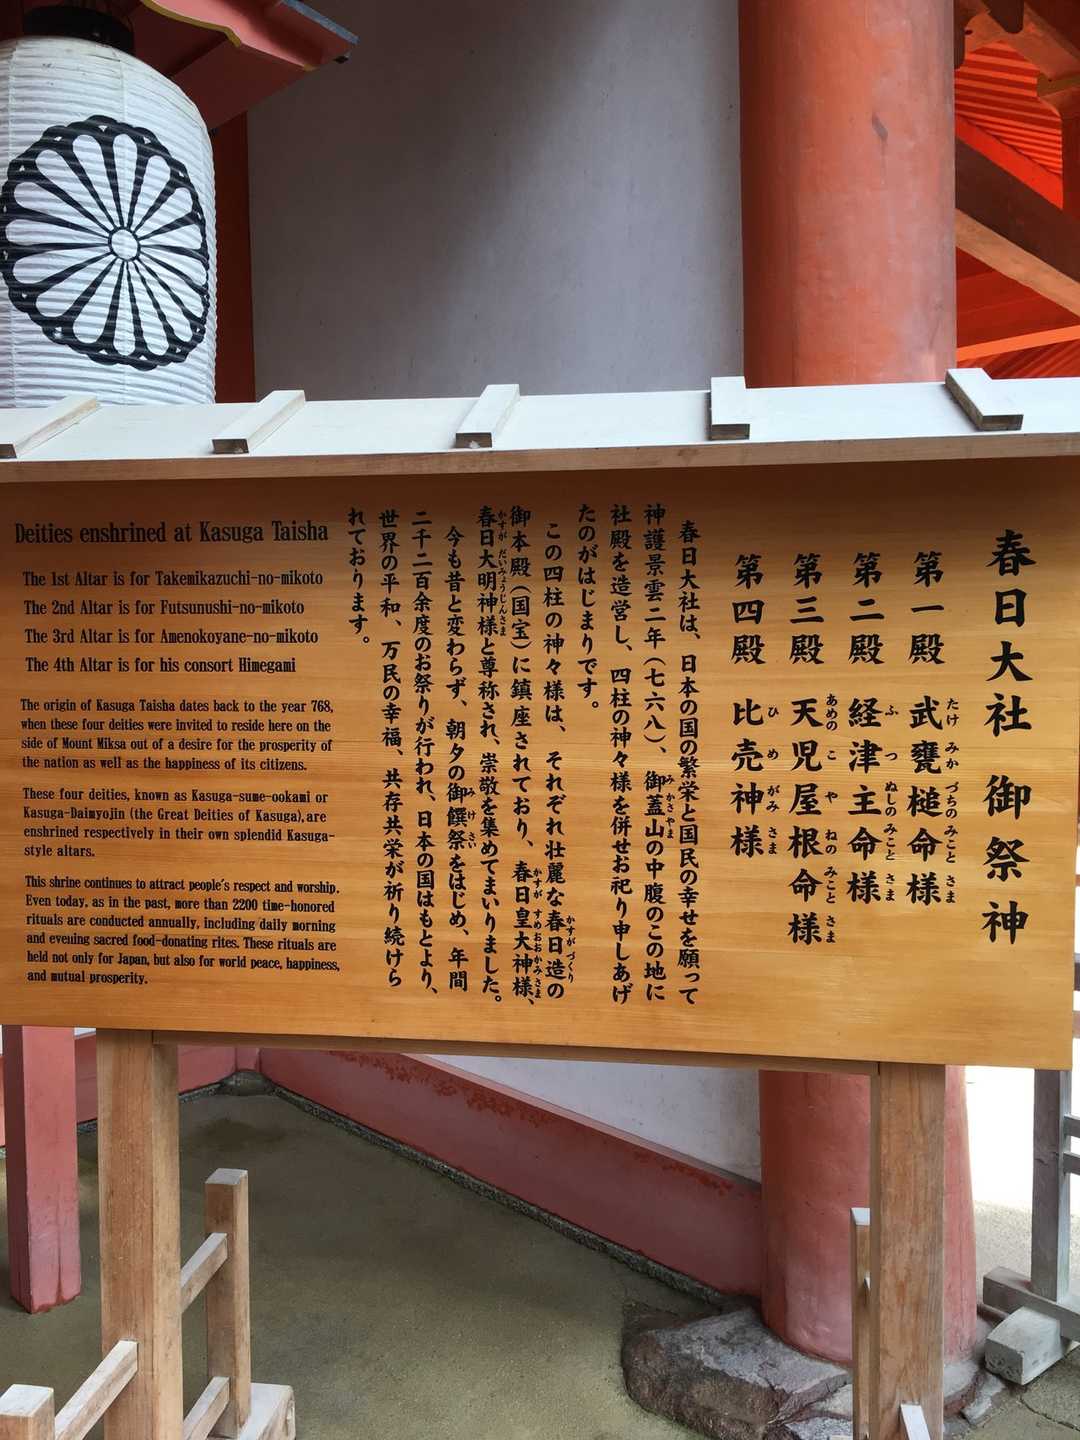 春日大社 御祭神
第一殿 武甕槌命様
たけ みか づちの みこと さま
第二殿 経津主命様
ふ つ ぬしの みこと さま
第三殿 天児屋根命様
あめの こ や ねの みこと さま
第四殿 比売神様
ひ め がみ さま
春日大社は、日本の国の繁栄と国民の幸せを願って
神護景雲二年（七六八）、御蓋山の中腹のこの地に
みかさやま
社殿を造営し、四柱の神々様を併せお祀り申しあげ
たのがはじまりです。
この四柱の神々様は、それぞれ壮麗な春日造の
かすがづくり
御本殿（国宝）に鎮座されており、春日皇大神様、
かすが すめおおかみ さま
春日大明神様と尊称され、崇敬を集めてまいりました。
かすが だいみょうじんさま
今も昔と変わらず、朝夕の御饌祭をはじめ、年間
みけさい
二千二百余度のお祭りが行われ、日本の国はもとより、
世界の平和、万民の幸福、共存共栄が祈り続けら
れております。
Deities enshrined at Kasuga Taisha
The 1st Altar is for Takemikazuchi-no-mikoto
The 2nd Altar is for Futsunushi-no-mikoto
The 3rd Altar is for Amenokoyane-no-mikoto
The 4th Altar is for his consort Himegami
The origin of Kasuga Taisha dates back to the year 768,
when these four deities were invited to reside here on the
side of Mount Miksa out of a desire for the prosperity of
the nation as well as the happiness of its citizens.
These four deities, known as Kasuga-sume-ookami or
Kasuga-Daimyojin (the Great Deities of Kasuga), are
enshrined respectively in their own splendid Kasuga-
style altars.
This shrine continues to attract people's respect and worship.
Even today, as in the past, more than 2200 time-honored
rituals are conducted annually, including daily morning
and evening sacred food-donating rites. These rituals are
held not only for Japan, but also for world peace, happiness,
and mutual prosperity.